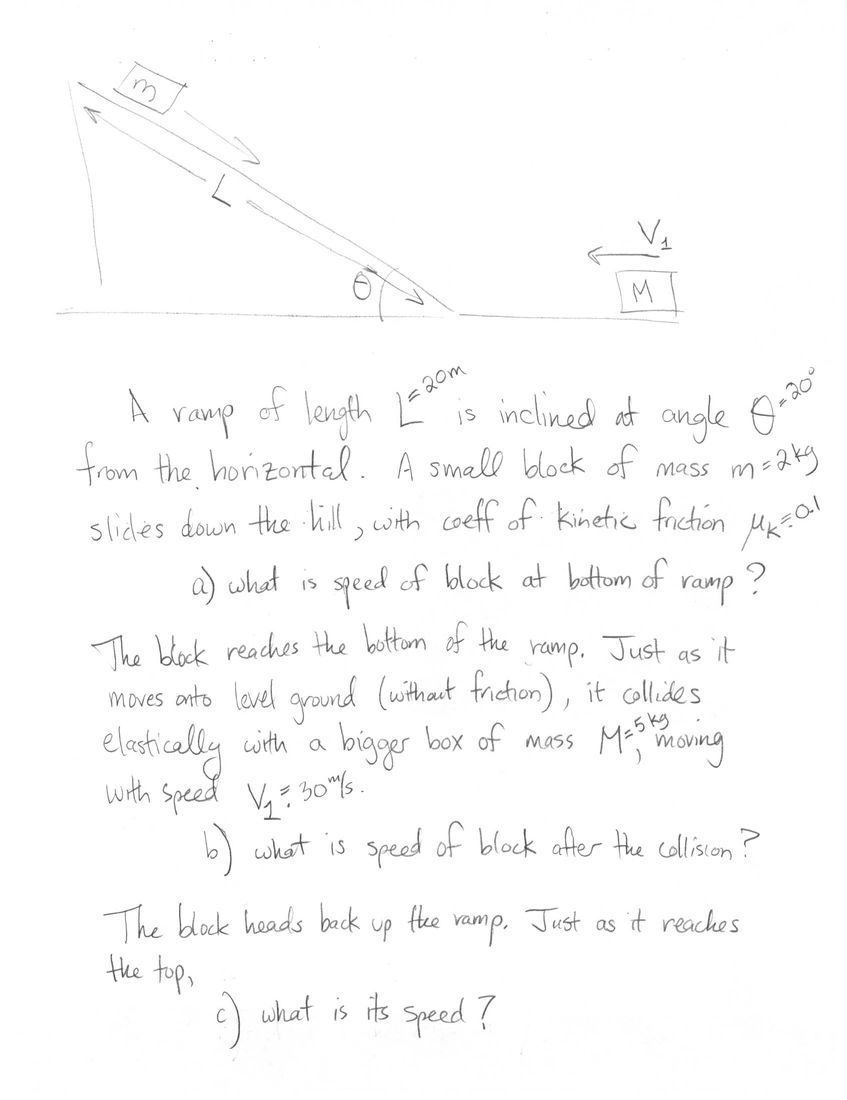 m
L
V₁
θ
M
A ramp of length L=20m is inclined at angle θ=20°
from the horizontal. A small block of mass m=2kg
slides down the hill, with coeff of kinetic friction μₖ=0.1
a) what is speed of block at bottom of ramp?
The block reaches the bottom of the ramp. Just as it
moves onto level ground (without friction), it collides
elastically with a bigger box of mass M=5kg, moving
with speed V₁=30m/s.
b) what is speed of block after the collision?
The block heads back up the ramp. Just as it reaches
the top,
c) what is its speed?